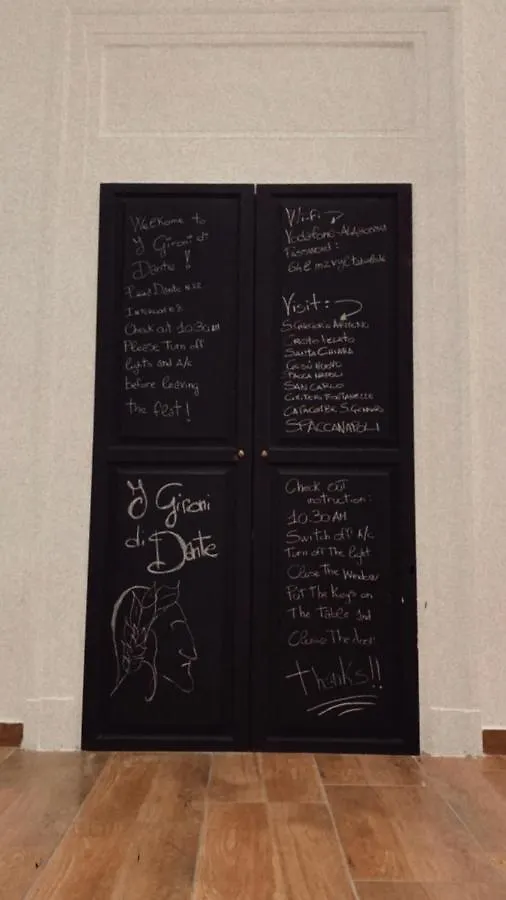 Welcome to
I Gironi di
Dante!
Dante N.22
Interno N.8
Check out 10.30 AM
Please Turn off
lights and A/c
before leaving
the flat!
I Gironi
di Dante
Wi-Fi
Vodafone-
Password:
Visit:
S. Gregorio Armeno
Cristo Velato
Santa Chiara
Gesù Nuovo
Pacca Napoli
San Carlo
Cimitero Fontanelle
Catacombe S. Gennaro
SPACCANAPOLI
Check out
instruction:
10.30 AM
Switch off A/c
Turn off The light
Close The Window
Put The Keys on
The Table and
Close The door
Thanks!!